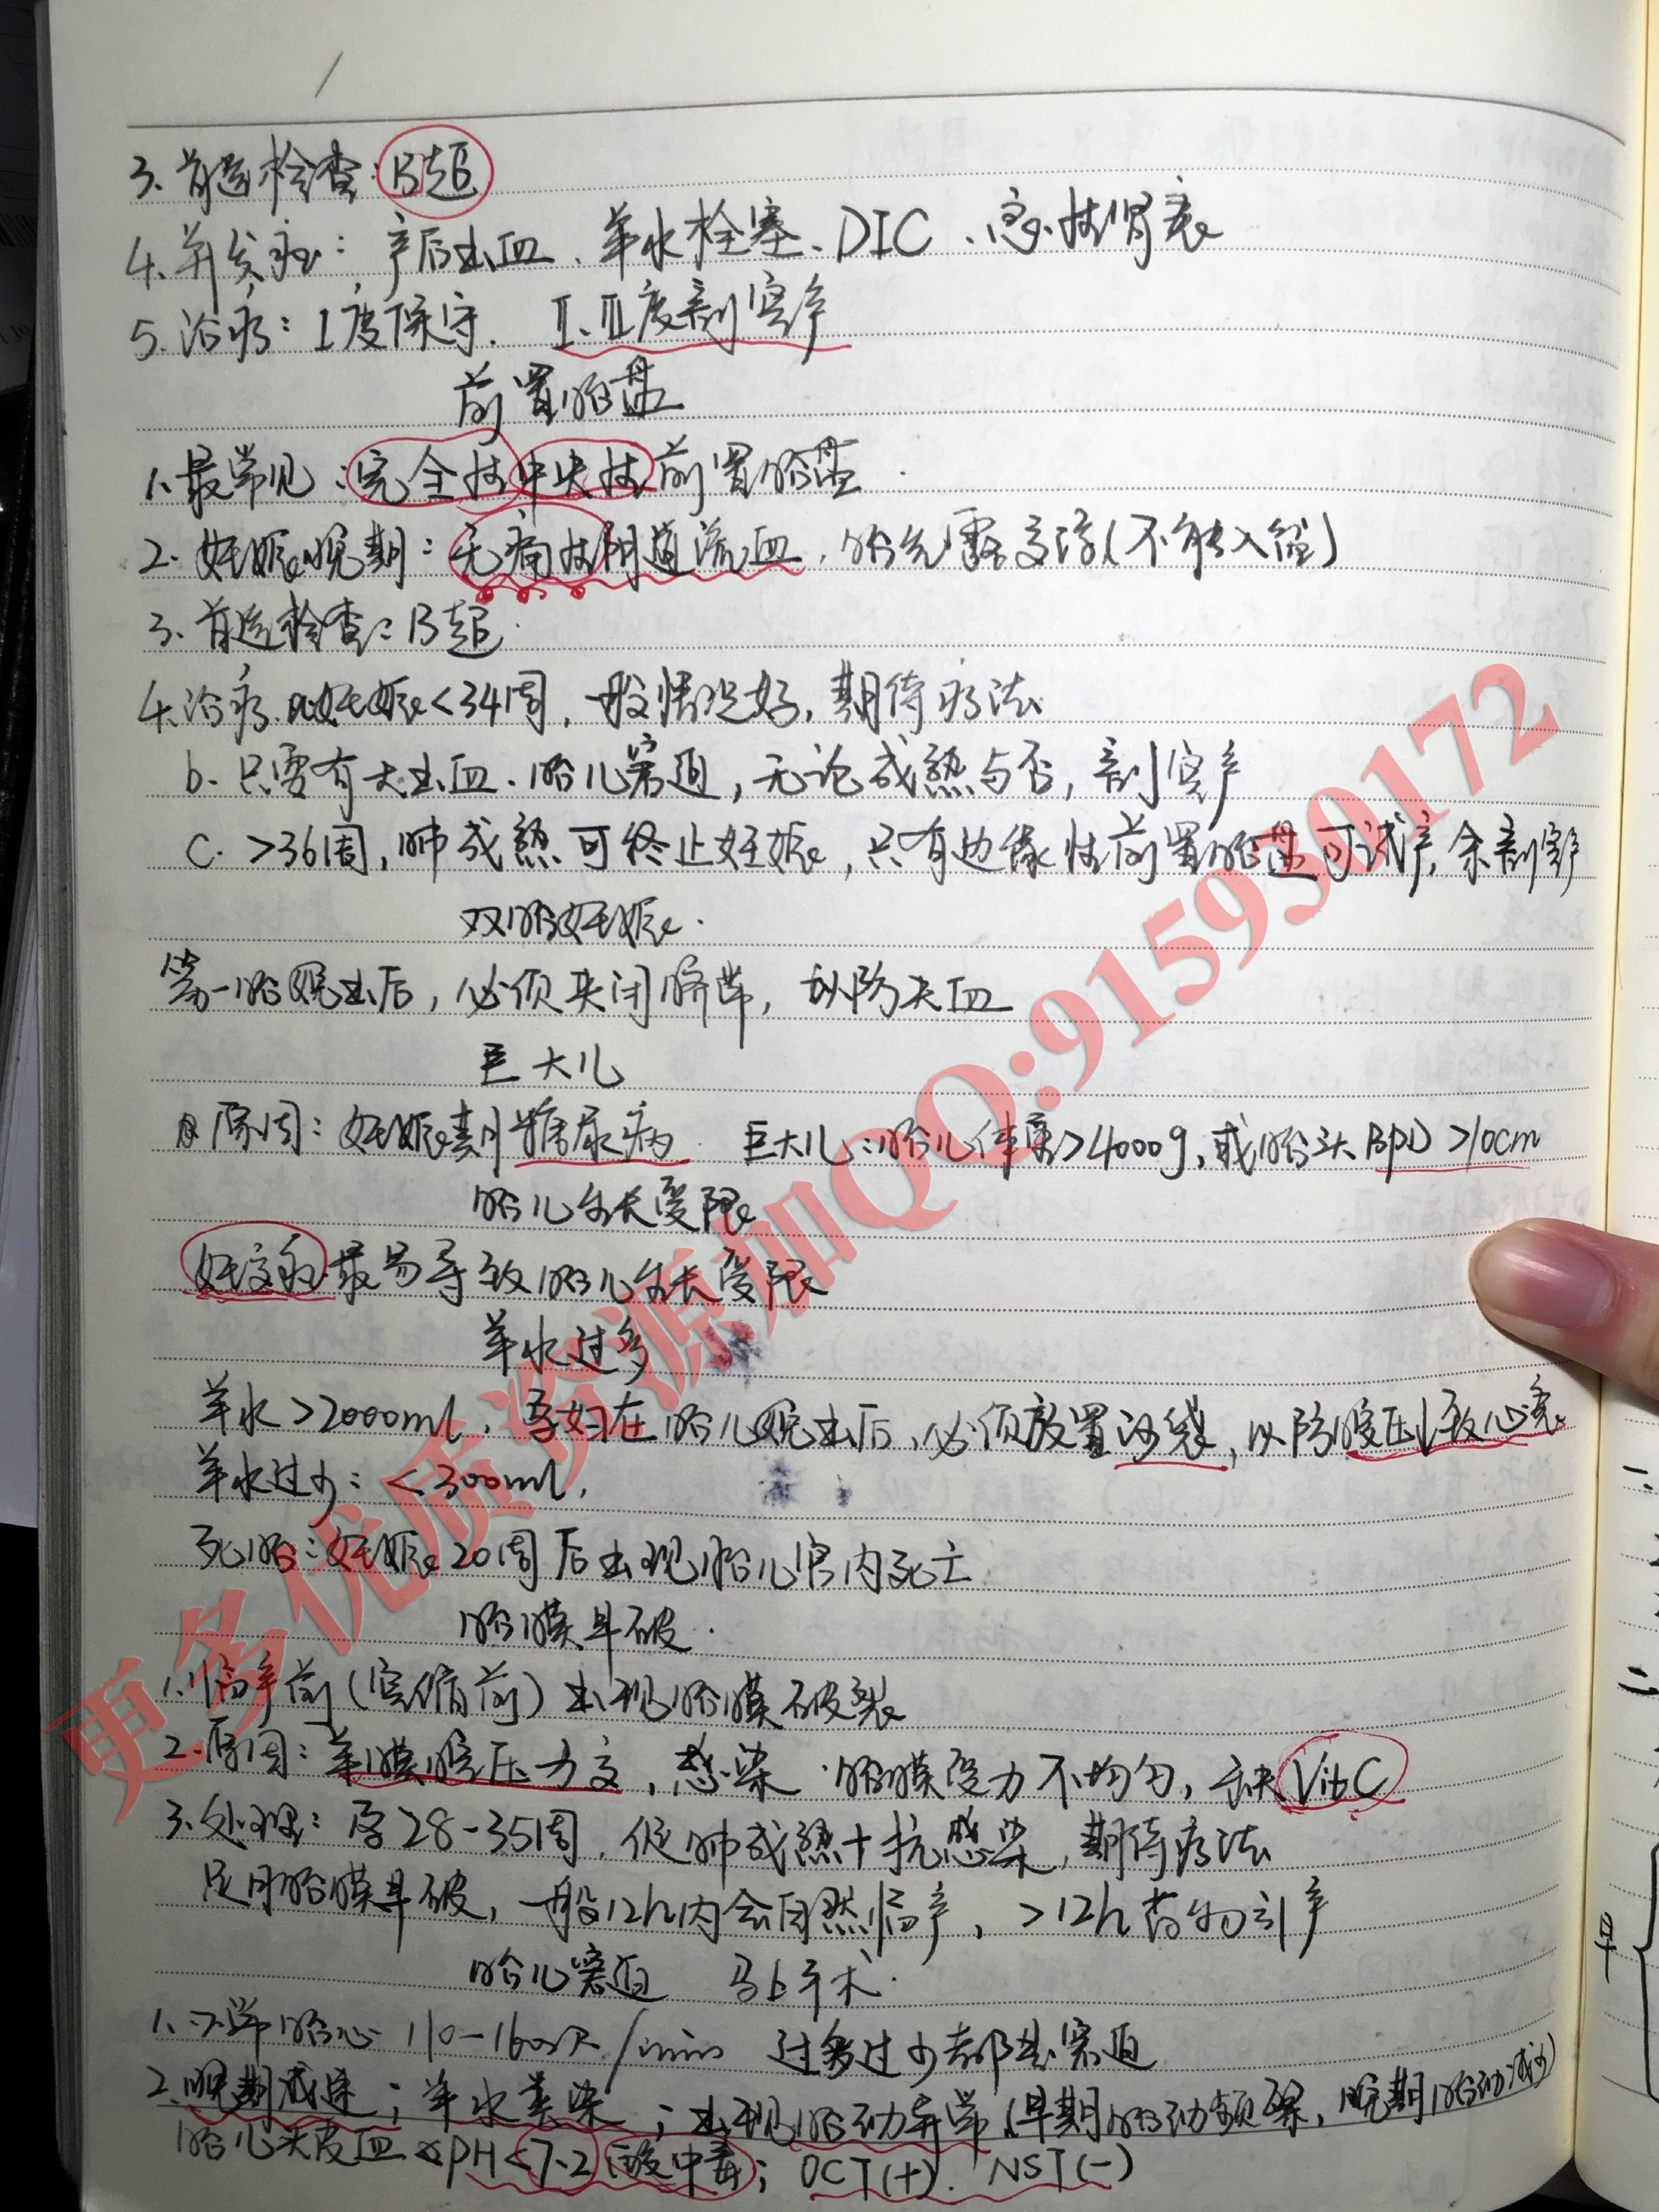 3. 首选检查: B超
4. 并发症: 产后出血、羊水栓塞、DIC、急性肾衰
5. 治疗: I度保守. Ⅱ、Ⅲ度剖宫产
前置胎盘
1. 最常见: 完全性中央性前置胎盘.
2. 妊娠晚期: 无痛性阴道流血, 胎先露高浮(不能入盆)
3. 首选检查: B超.
4. 治疗. a.妊娠<34周, 一般情况好, 期待疗法
b. 只要有大出血、胎儿窘迫, 无论成熟与否, 剖宫产
C. >36周, 肺成熟可终止妊娠, 只有边缘性前置胎盘可试产, 余剖宫产
双胎妊娠.
第一胎娩出后, 必须夹闭脐带, 以防失血
巨大儿
原因: 妊娠期糖尿病. 巨大儿: 胎儿体重>4000g, 或胎头BPD>10cm
胎儿生长受限
妊高症最易导致胎儿生长受限
羊水过多
羊水>2000ml, 孕妇在胎儿娩出后, 必须放置沙袋, 以防腹压↓致心衰
羊水过少: <300ml,
死胎: 妊娠20周后出现胎儿宫内死亡
胎膜早破.
1. 临产前(宫缩前)出现胎膜破裂
2. 原因: 羊膜腔压力高, 感染. 胎膜受力不均匀, 缺VitC
3. 处理: 孕28-35周, 促肺成熟+抗感染, 期待疗法
足月胎膜早破, 一般12h内会自然临产, >12h药物引产
胎儿窘迫 马上手术.
1. 正常胎心 110-160次/min 过多过少都是窘迫
2. 晚期减速; 羊水粪染; 出现胎动异常(早期胎动频繁, 晚期胎动减少)
胎儿头皮血 PH<7.2 酸中毒; OCT(+). NST(-)
早
更多优质资源加QQ:915930172